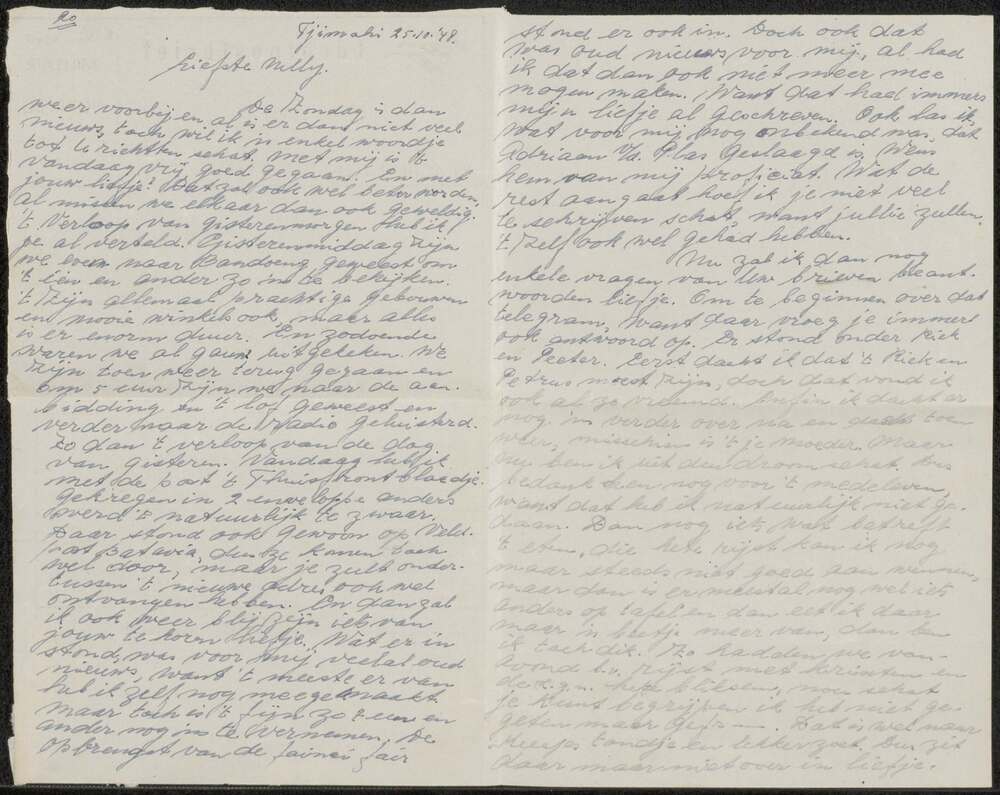 20
Tjimahi 25.10.'48.
Liefste Nelly.
De Zondag is dan
weer voorbij en al is er dan niet veel
nieuws, toch wil ik 'n enkel woordje
tot je richten schat. Met mij is 't
vandaag vrij goed gegaan. En met
jouw liefje? Dat zal ook wel
Al missen we elkaar dan ook geweldig.
't Verloop van gisterenmorgen heb ik
je al verteld. Gisterenmiddag zijn
we even naar Bandoeng geweest om
't een en ander zo 'ns te bekijken.
't Zijn allemaal prachtige gebouwen
en mooie winkels ook, maar alles
is er enorm duur. En zodoende
waren we al gauw uitgekeken. We
zijn toen weer terug gegaan en
om 5 uur zijn we naar de aan-
bidding en 't lof geweest en
verder naar de radio geluisterd.
Zo dan 't verloop van de dag
van gisteren. Vandaag heb ik
met de post 't Thuisfront blaadje
gekregen in 2 enveloppe anders
werd 't natuurlijk te zwaar.
Daar stond ook gewoon op Veld-
post Batavia, dus ze komen toch
wel door, maar je zult onder-
tussen 't nieuwe adres ook wel
ontvangen hebben. En dan zal
ik ook weer blij zijn iets van
jouw te horen liefje. Wat er in
stond, was voor mij veelal oud
nieuws, want 't meeste er van
heb ik zelf nog meegemaakt
maar toch is 't fijn zo 't een en
ander nog 'ns te vernemen. De
opbrengst van de fair
stond er ook in. Doch ook dat
was oud nieuws voor mij, al had
ik dat dan ook niet meer mee
mogen maken. Want dat had immers
mijn liefje al geschreven. Ook las ik,
wat voor mij nog onbekend was, dat
Adriaan v/d. Plas geslaagd is. Wens
hem van mij proficiat. Wat de
rest aangaat hoef ik je niet veel
te schrijven schat, want jullie zullen
't zelf ook wel gehad hebben.
Nu zal ik dan nog
enkele vragen van Uw brieven beant-
woorden liefje. Om te beginnen over dat
telegram, want daar vroeg je immers
ook antwoord op. Er stond onder Riek
en Peeter. Eerst dacht ik dat 't Riek en
Petrus moest zijn, doch dat vond ik
ook al zo vreemd. Enfin ik dacht er
nog 'ns verder over na en dacht toen
weer, misschien is 't je moeder. Maar
nu ben ik uit den droom schat. Dus
bedankt en nog voor 't medeleven,
want dat heb ik natuurlijk niet ge-
daan. Dan nog iets wat betreft
't eten, die hete rijst kan ik nog
maar steeds niet goed aan wennen,
maar dan is er meestal nog wel iets
anders op tafel en dan eet ik daar
maar 'n beetje meer van, dan ben
ik toch dik. Zo hadden we van-
avond b.v. rijst met krinten en
de z.g.n. hete bliksem, nou schat
je kunt begrijpen ik heb niet ge-
geten maar Dat is wel naar
tandje en lekker zoet. Dus zit
daar maar niet over in liefje.